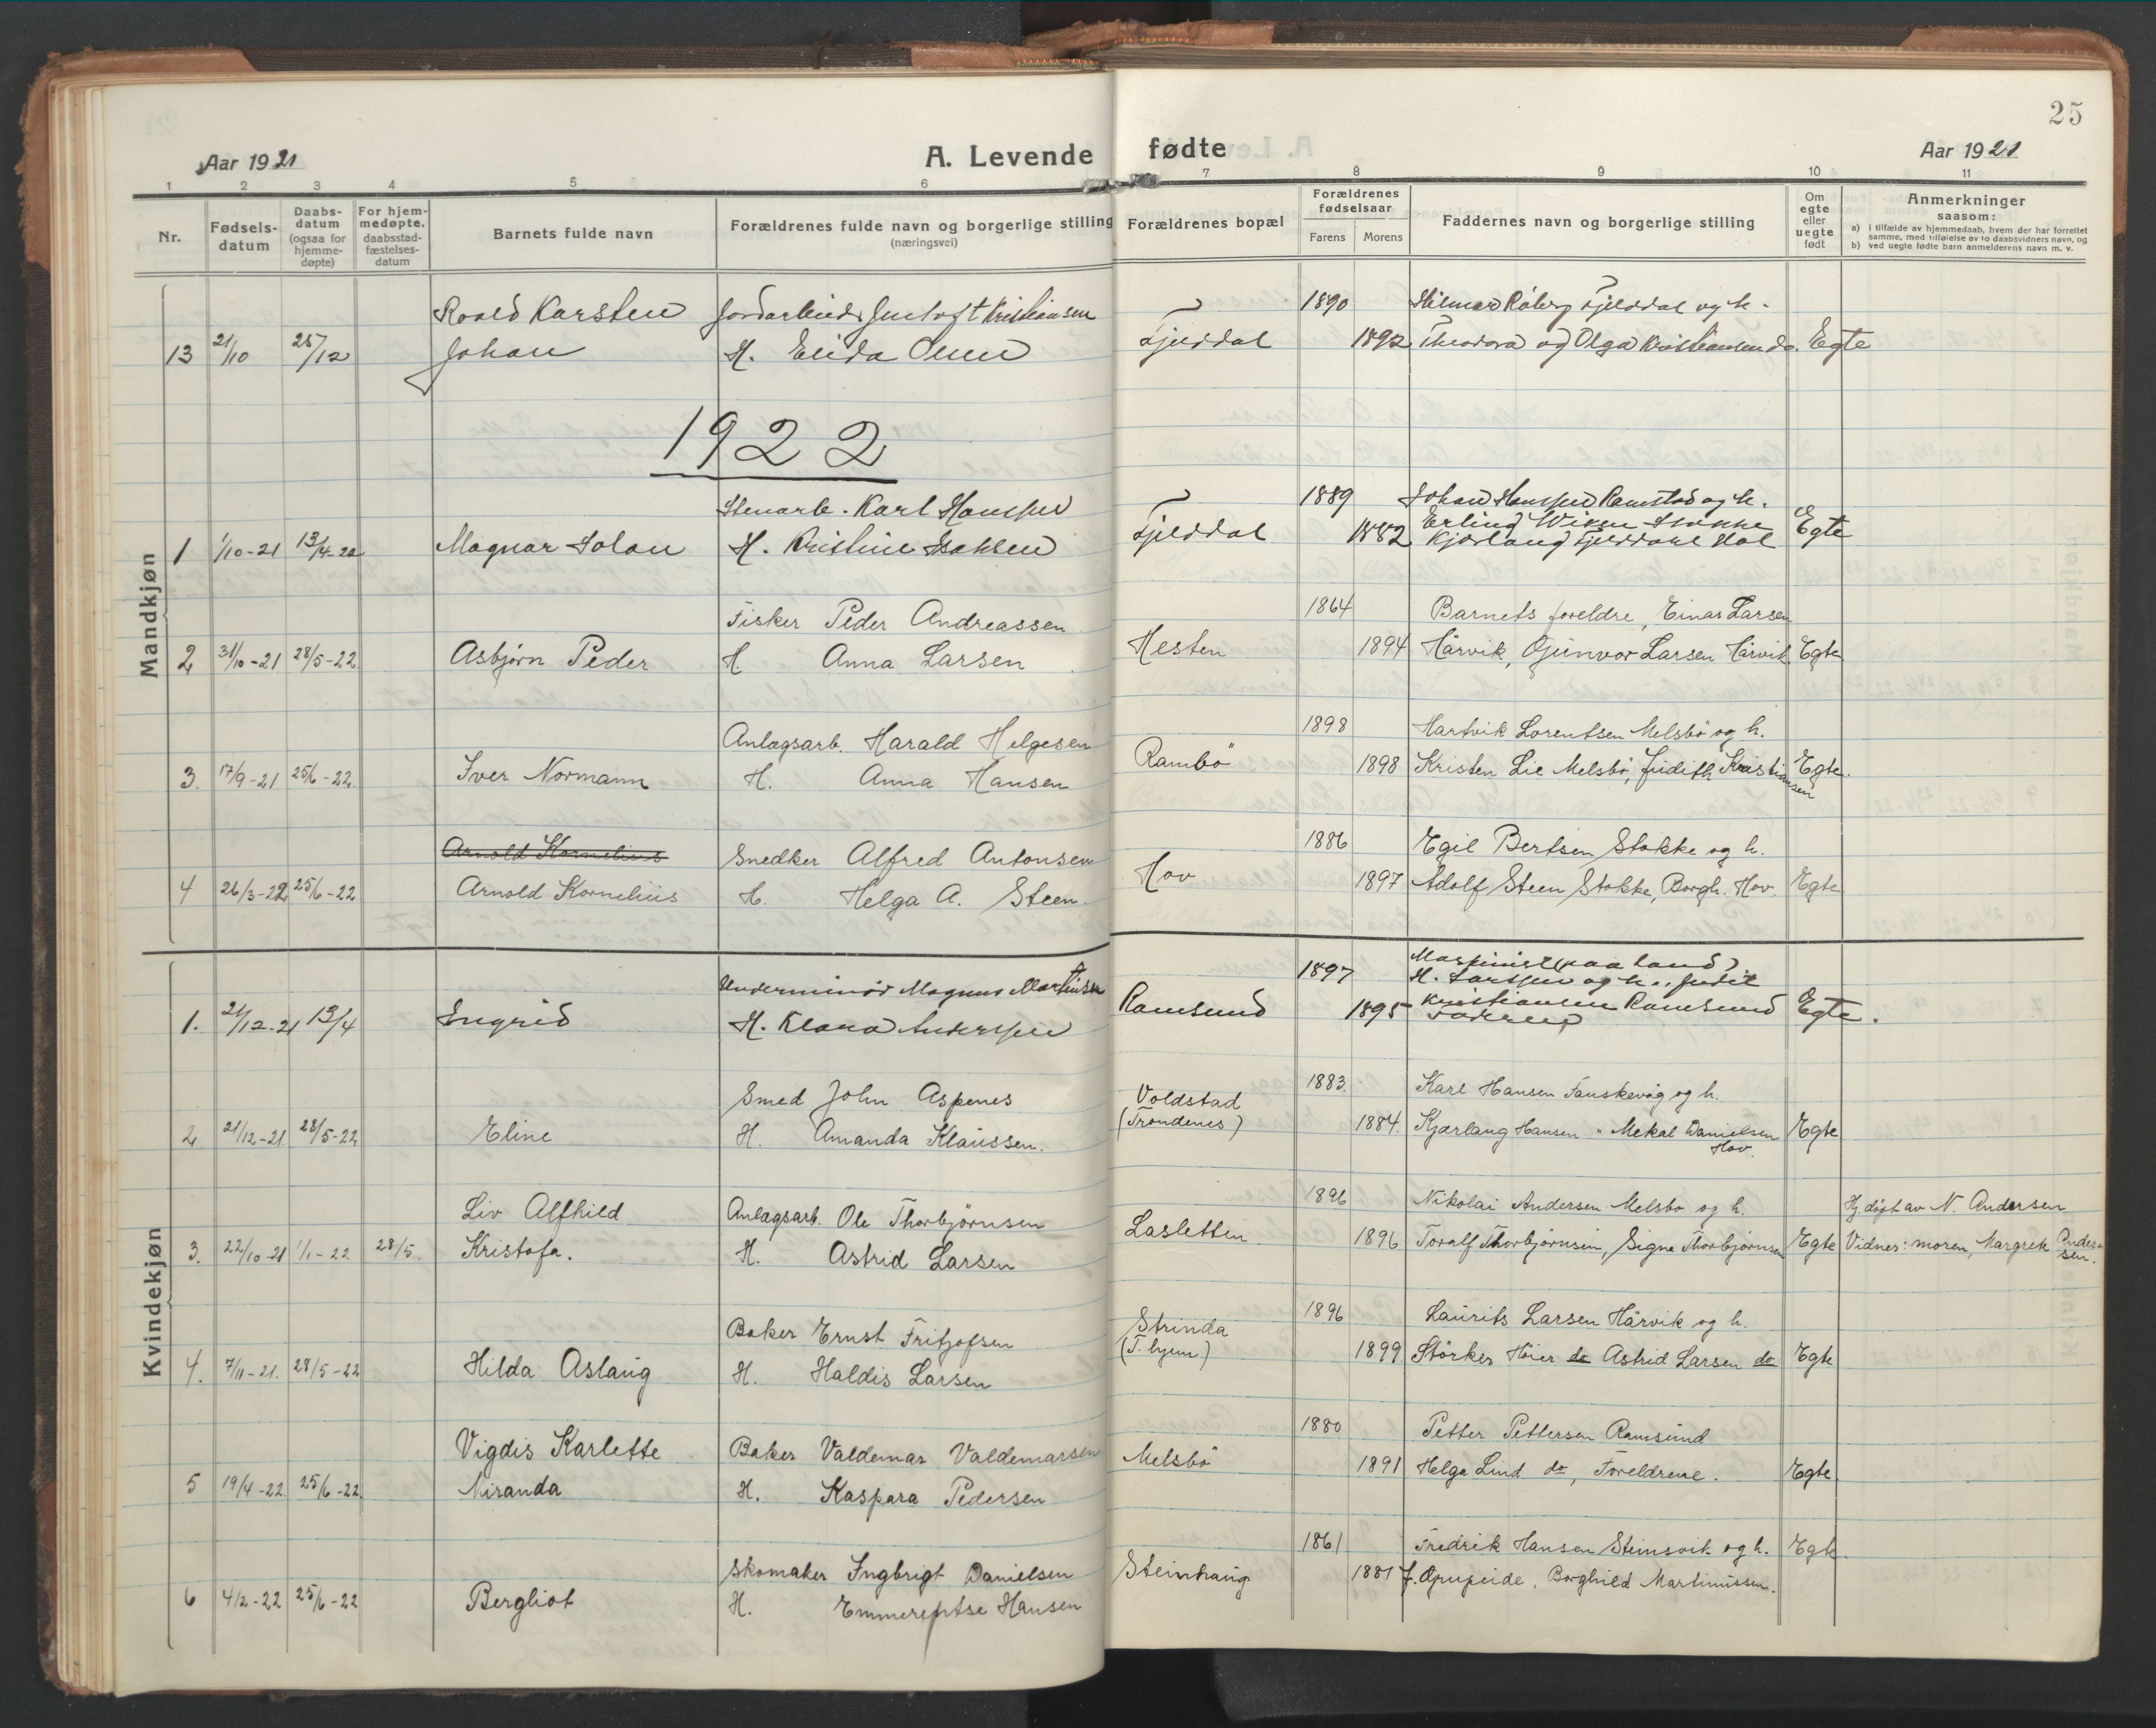 25
Aar 1921
A. Levende fødte
Aar 1921
1 2 3 4 5 6 7 8 9 10 11
Nr.
Fødsels-
datum
Daabs-
datum
(ogsaa for
hjemme-
døpte)
For hjem-
medøpte.
daabsstad-
fæstelses-
datum
Barnets fulde navn
Forældrenes fulde navn og borgerlige stilling
(næringsvei)
Forældrenes bopæl
Forældrenes
fødselsaar
Farens Morens
Faddernes navn og borgerlige stilling
Om
egte
eller
uegte
født
Anmerkninger
saasom:
a) i tilfælde av hjemmedaab, hvem der har forrettet
samme, med tilføielse av to daabsvidners navn, og
b) ved uegte fødte barn anmelderens navn m. v.
Roald Karsten Kristiansen 1890 Hilmar Fjelddal og h.
13 21/10 25/12 Johan H. Elida Olsen Fjelddal 1892 Theodora og Olga Kristiansen do. Egte
1922
Mandkjøn
Stenarb. Karl Hanssen 1889 Johan Hanssen Ramstad og h.
1 1/10-21 13/4-22 Magnar Johan H. Kristine Isaksen Fjelddal 1882 Erling Egte
Kjærlaug Fjelddal
Fisker Peder Andreassen 1864 Barnets foreldre, Einar Larsen
2 31/10-21 28/5-22 Asbjørn Peder H Anna Larsen Hesten 1894 Hårvik, Gunvor Larsen Hårvik Egte
Anlagsarb. Harald Helgesen 1898 Hartvik Lorentsen Melsbö og h.
3. 17/9-21 25/6-22 Iver Normann H. Anna Hansen Rambö 1898 Kristen Lie Melsbö, Judith Kristiansen Egte.
Arnold Kornelius Snedker Alfred Antonsen 1886 Egil Bertsen Stokke og h.
4 26/3-22 25/6-22 Arnold Kornelius H. Helga A. Steen. Hov 1897 Adolf Steen Stokke, Borgh. Hov. Egte
Kvindekjøn
Underminör Magnus Martinssen 1897 Maskinist (paa land)
H. Larssen og h., Judit
1. 21/12-21 13/4 Ingrid H. Klara Anderssen Ramsund 1895 Kristiansen Ramsund Egte.
Faderen
Smed John Aspenes Voldstad 1883. Karl Hansen Fauskevåg og h.
2 21/12-21 28/5-22 Eline H. Amanda Klaussen. (Trondenes) 1884. Kjærlaug Hansen " Mekal Danielsen Egte
Hov.
Liv Alfhild Anlagsarb. Ole Thorbjörnsen 1896 Nikolai Andersen Melsbo og h. Hj. döpt av N. Andersen
3. 22/10-21 1/1-22 28/5. Kristofa. H. Astrid Larsen Lasletten 1896 Toralf Thorbjörnsen, Signe Thorbjörnsen Egte Vidner: moren, Margrete Ander-
sen.
Baker Ernst Fritjofsen Strinda 1896 Laurits Larsen Hårvik og h.
4. 7/11-21. 28/5-22 Hilda Aslaug H. Haldis Larsen (T. hjem) 1899 Störker Höier do Astrid Larsen do Egte
Vigdis Karlette Baker Valdemar Valdemarsen 1880 Petter Pettersen Ramsund
5 19/4-22. 25/6-22. Niranda H. Kaspara Pedersen Melsbö 1891 Helga Lind do, Foreldrene. Egte
Skomaker Ingbrigt Danielsen 1861 Fredrik Hansen Steinsvik og h. Egte
6 4/2-22 25/6-22 Bergliot H. Hansen Steinhaug 1881 Borghild Martinussen.